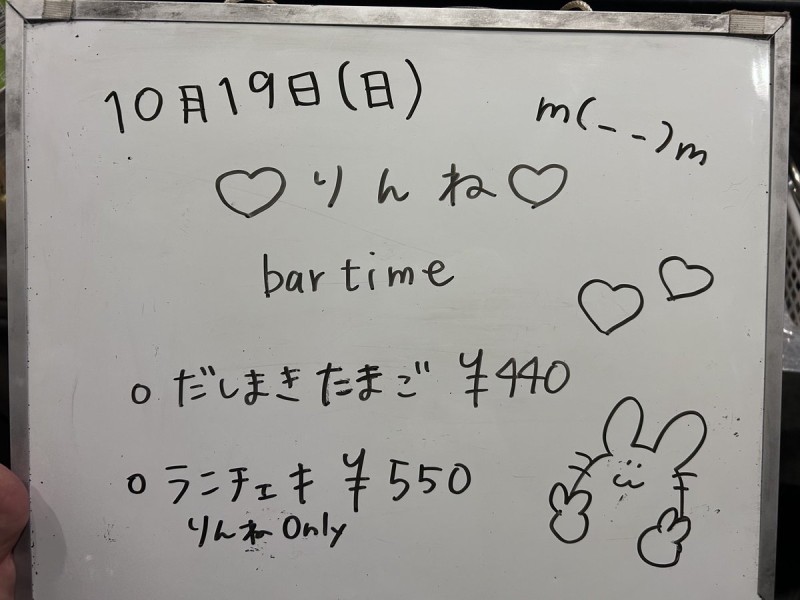 10月19日(日)
m(_ _)m
♡りんね♡
bar time
○ だしまきたまご ¥440
○ ラニチェキ ¥550
りんね Only